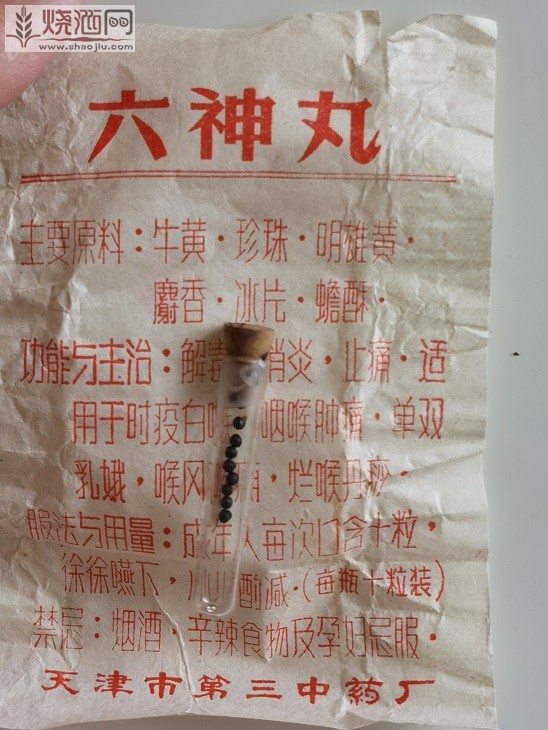 烧酒网
www.shaojiu.com
六神丸
主要原料：牛黄·珍珠·明雄黄·
麝香·冰片·蟾酥·
功能与主治：解毒 消炎，止痛·适
用于时疫白喉 咽喉肿痛·单双
乳娥，喉风 烂喉丹痧·
服法与用量：成年人每次口含十粒，
徐徐嚥下，小儿酌减·(每瓶十粒装)
禁忌：烟酒，辛辣食物及孕妇忌服·
天津市第三中药厂